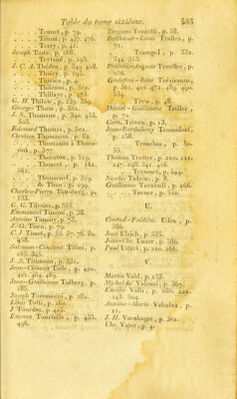 Table du tome sixième. 585
Tennel, p. 79.
Ténon, p. 487. 476.
Terry, p. 41.
Joseph Testa, p. 168.
J. C. A. Théden, p. 349. 418.
Thiéry, p. 196.
p. 4.
Thilenus, p. 512.
Thillaye, p. 473.
G. H. Thilow, p. 239.
George Thom, p. 502.
J. S. Thomann, p. 340. 456.
503.
Edouard Thomas, p. 502.
Chrétien Thomasius, p. 81.
Thomassin à Thues-
sink, p. 377.
Thoraton, p. 519.
Thouret, p., p. 164.
561.
Thouvenel, p. 319.
de Thou, p. 299.
Charles-Pierre Thunberg, p.
233.
G. G. Tilesius, p. 585.
Emmanuel Timoni, p. 38.
Antoine Tissnay, p. 73.
J.-G. Tiorn, p. 79.
C. J. Tissot, p. 55. 67. 76. 80.
458.
Salomon-Constant Titius, p.
285. 345.
J. A. Tittmann, p. 351.
Jean-Clément Tode, p. 420.
421. 484. 489.
Jean-Guillaume Tolberg, p.
185.
Joseph Tommasini, p. 282.
Louis Totti, p. 269.
J. Tourdes, p. 425.
Etienne Tourtelle, p. 433.
496.
Torgiano Tozzetti, p. 58.
Balthasar-Louis Tralles, p.
71.
Trampel, p. 332.
344. 353.
Fréderic-Auguste Treutler, p.
256.
Godefroi-René Trévirenus,
p. 361. 401. 472. 489. 490.
534.
Trew, p. 48.
Daniel-Guillaume Triller,
p. 72.
Corn. Trioen, p. 13.
Jean-Barthélemy Tromsdorf,
p. 258.
Tronchin, p. 50.
55.
Thomas Trotter, p. 220. 221.
247. 248. 341. 416.
Trumwel, p. 244.
Nicolas Tulpius, p.
Guillaume Turnbull, p. 266.
Turner, p. 520.
U.
Conrad-Frédéric Uden, p.
386.
Jean Ulrich, p. 535.
Joannès de Unzer, p. 386.
Paul Usteri, p. 220. 266.
V.
Martin Vahl, p. 233.
Michel de Valenti, p. 367.
Eusèbe Valli, p. 166. 222.
248. 324.
Antoine-Marie Valsalva, p.
11.
J. H. Varnhagen, p. 504.
Chr. Vater, p. 4.